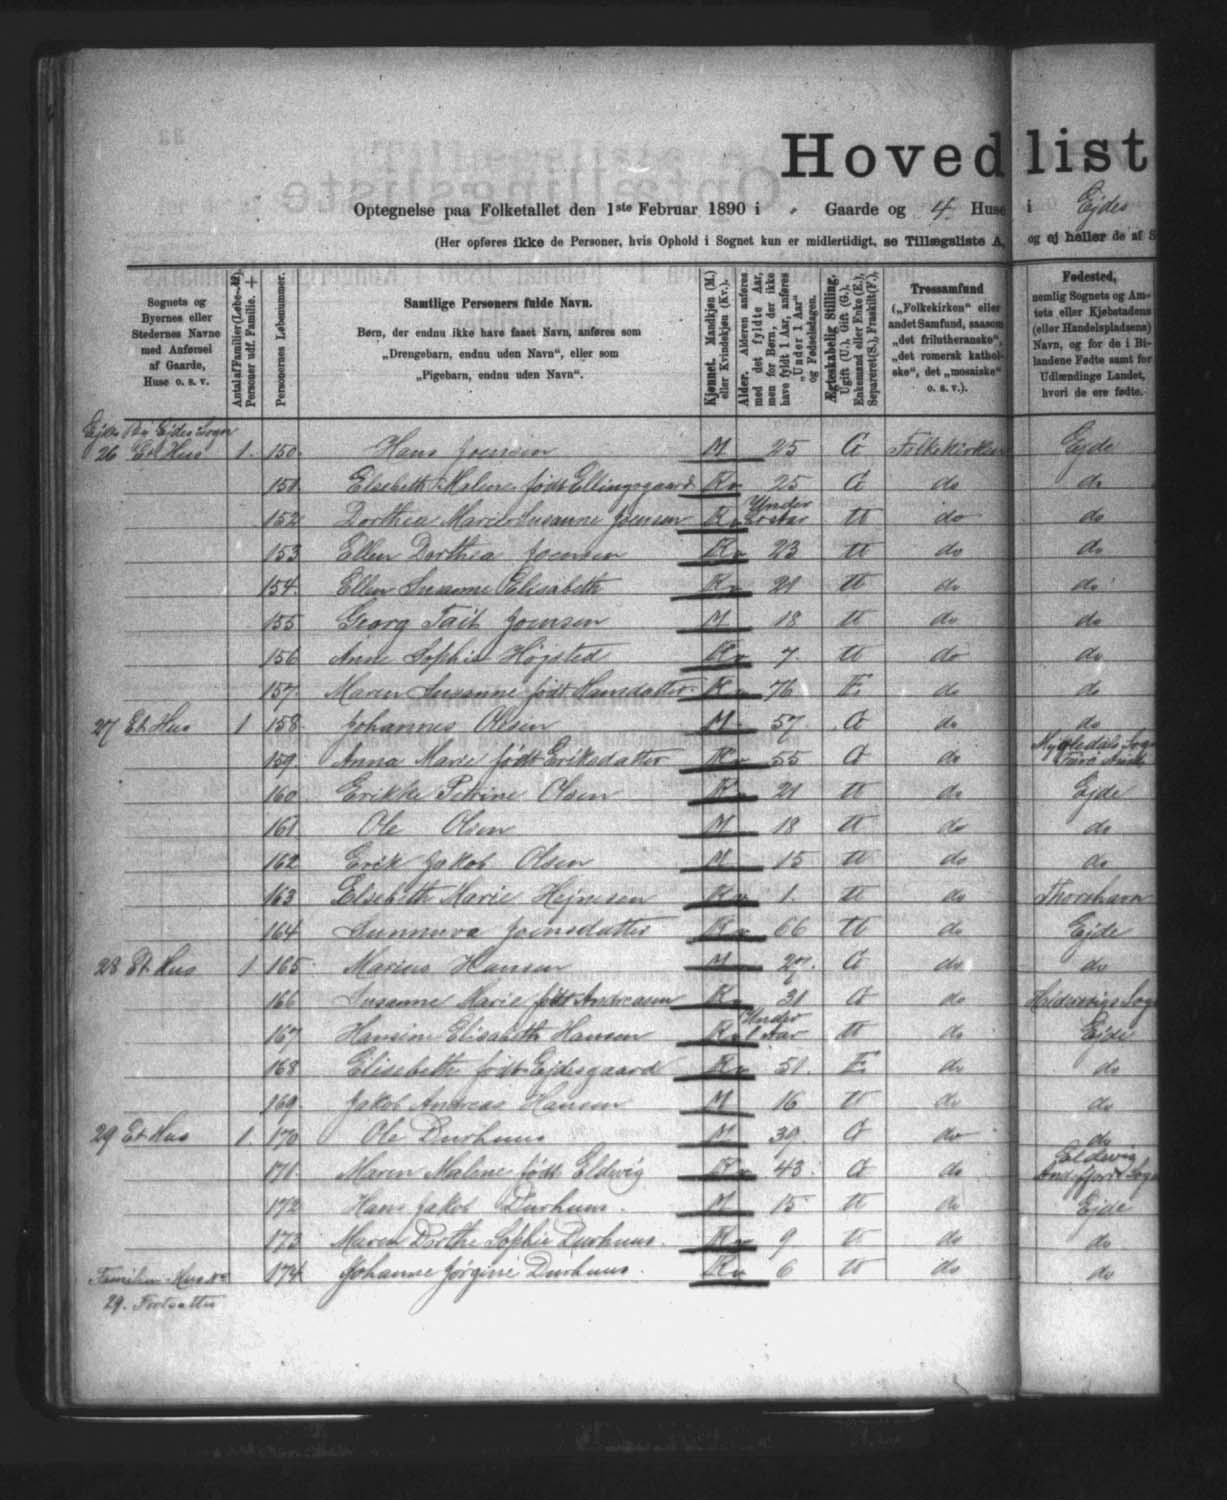 Hovedlist
Optegnelse paa Folketallet den 1ste Februar 1890 i " Gaarde og 4 Huse i Ejdes
(Her opføres ikke de Personer, hvis Ophold i Sognet kun er midlertidigt, se Tillægsliste A, og ej heller de af S
Sognets og Byernes eller Stedernes Navne med Anførsel af Gaarde, Huse o. s. v.
Antal af Familier (Løbe-№). Personer udf. Familie. +
Personernes Løbenummer.
Samtlige Personers fulde Navn.
Børn, der endnu ikke have faaet Navn, anføres som
„Drengebarn, endnu uden Navn“, eller som
„Pigebarn, endnu uden Navn“.
Kjønnet. Mandkjøn (M.) eller Kvindekjøn (Kv.).
Alder. Alderen anføres med det fyldte Aar, men for Børn, der ikke have fyldt 1 Aar, anføres „Under 1 Aar“ og Fødselsdagen.
Ægteskabelig Stilling. Ugift (U.), Gift (G.), Enkemand eller Enke (E.), Separeret (S.), Fraskilt (F.).
Trossamfund
(„Folkekirken“ eller andet Samfund, saasom „det frilutheranske“, „det romersk katholske“, det „mosaiske“ o. s. v.).
Fødested,
nemlig Sognets og Amtets eller Kjøbstadens (eller Handelspladsens) Navn, og for de i Bilandene Fødte samt for Udlændinge Landet, hvori de ere fødte.
Ejde By Ejdes Sogn
26 Et Hus 1. 150. Hans Joensen M 25 G Folkekirken Ejde
151. Elsebeth Malene født Ellingsgaard Kv 25 G do do
152 Dorthea Marie Susanne Joensen Kv Under U do do
153 Ellen Dorthea Joensen Kv 23 U do do
154. Ellen Susanne Elisabeth Kv 21 U do do
155 Georg Tait Joensen M 18 U do do
156 Anne Sophie Højsted Kv 7. U do do
157. Maren Susanne født Hansdatter Kv 76 E do do
27 Et Hus 1 158. Johannes Olsen M 57 G do do
159. Anna Marie født Eriksdatter Kv 55 G do Mygledals Sogn
160. Erikke Petrine Olsen Kv 21 U do Ejde
161 Ole Olsen M 18 U do do
162 Erik Jakob Olsen M 15 U do do
163 Elsebeth Marie Hejnesen Kv 1. U do Thorshavn
164 Sunneva Joensdatter Kv 66 U do Ejde
28 Et Hus 1 165. Marius Hansen M 27. G do do
166 Susanne Marie født Andreasen Kv 31 G do Sogn
167 Hansine Elisabeth Hansen Kv Under 1 Aar U do Ejde
168 Elisebeth født Ejdesgaard Kv 51. E do do
169. Jakob Andreas Hansen M 16 U do do
29 Et Hus 1. 170 Ole Durhuus M 39. G do do
171. Maren Malene født Eldevig Kv 43. G do Eldevig Andefjords Sogn
172 Hans Jakob Durhuus. M 15 U do Ejde
173 Maren Dorthe Sophie Durhuus. Kv 9 U do do
174 Johanne Jørgine Durhuus. Kv 6 U do do
Familien Hus No
29. Fortsættes